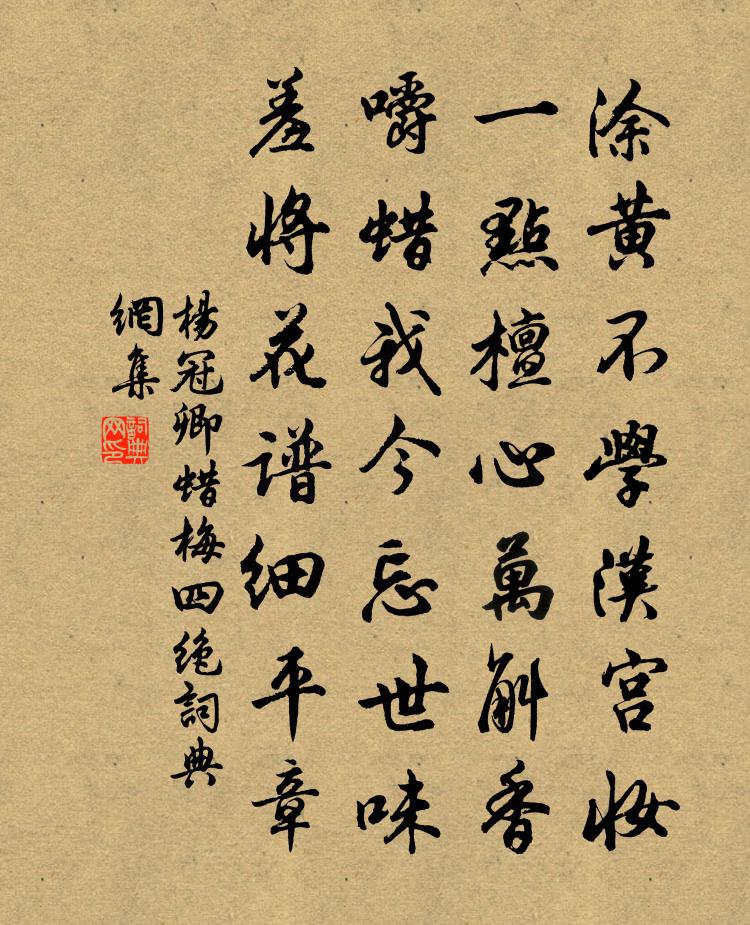 涂黄不學漢宫妝
一點檀心萬斛香
嚼蜡我今忘世味
羞將花谱细平章
楊冠卿蜡梅四绝詞典
網集
詞典
网印